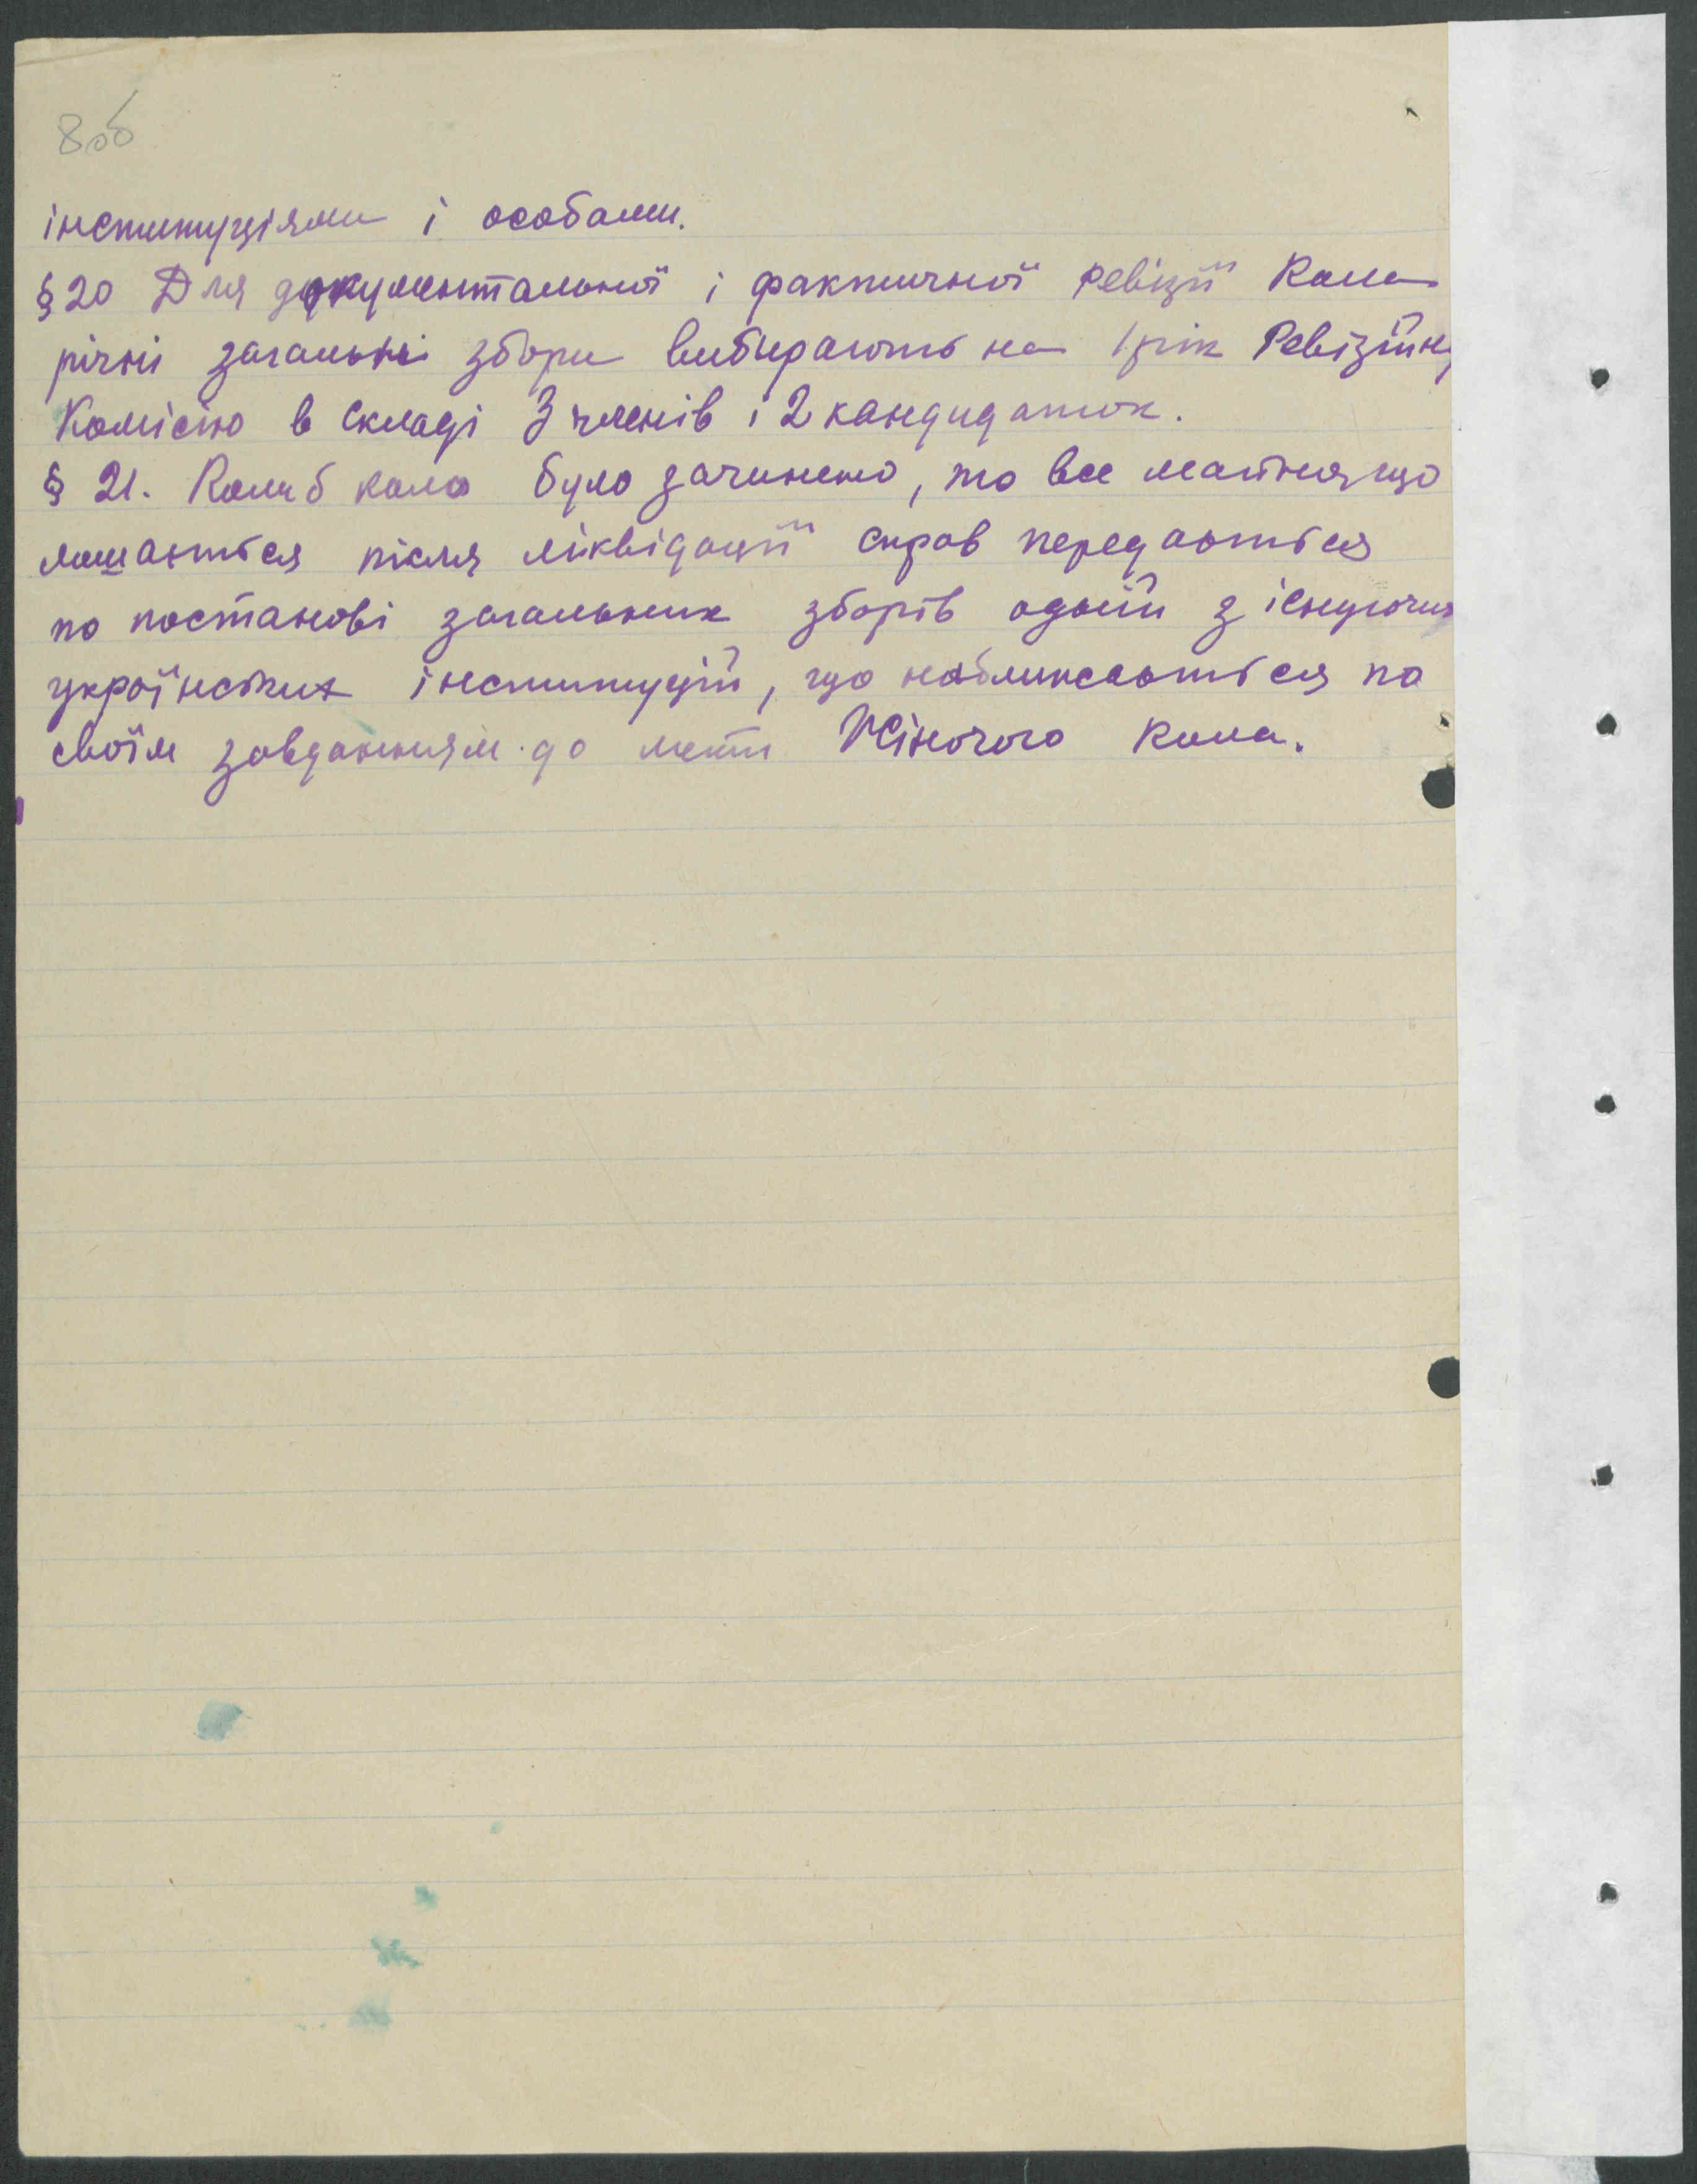 8об
інституціями і особами.
§ 20 Для документальної і фактичної ревізії Кола
річні загальні збори вибирають на 1 рік Ревізійну
Комісію в складі 3 членів і 2 кандидаток.
§ 21. Коли б кола було зачинено, то все майно що
лишається після ліквідації справ передається
по постанові загальних зборів одній з існуючих
українських інституцій, що наближається по
своїм завданням до мети Жіночого Кола.